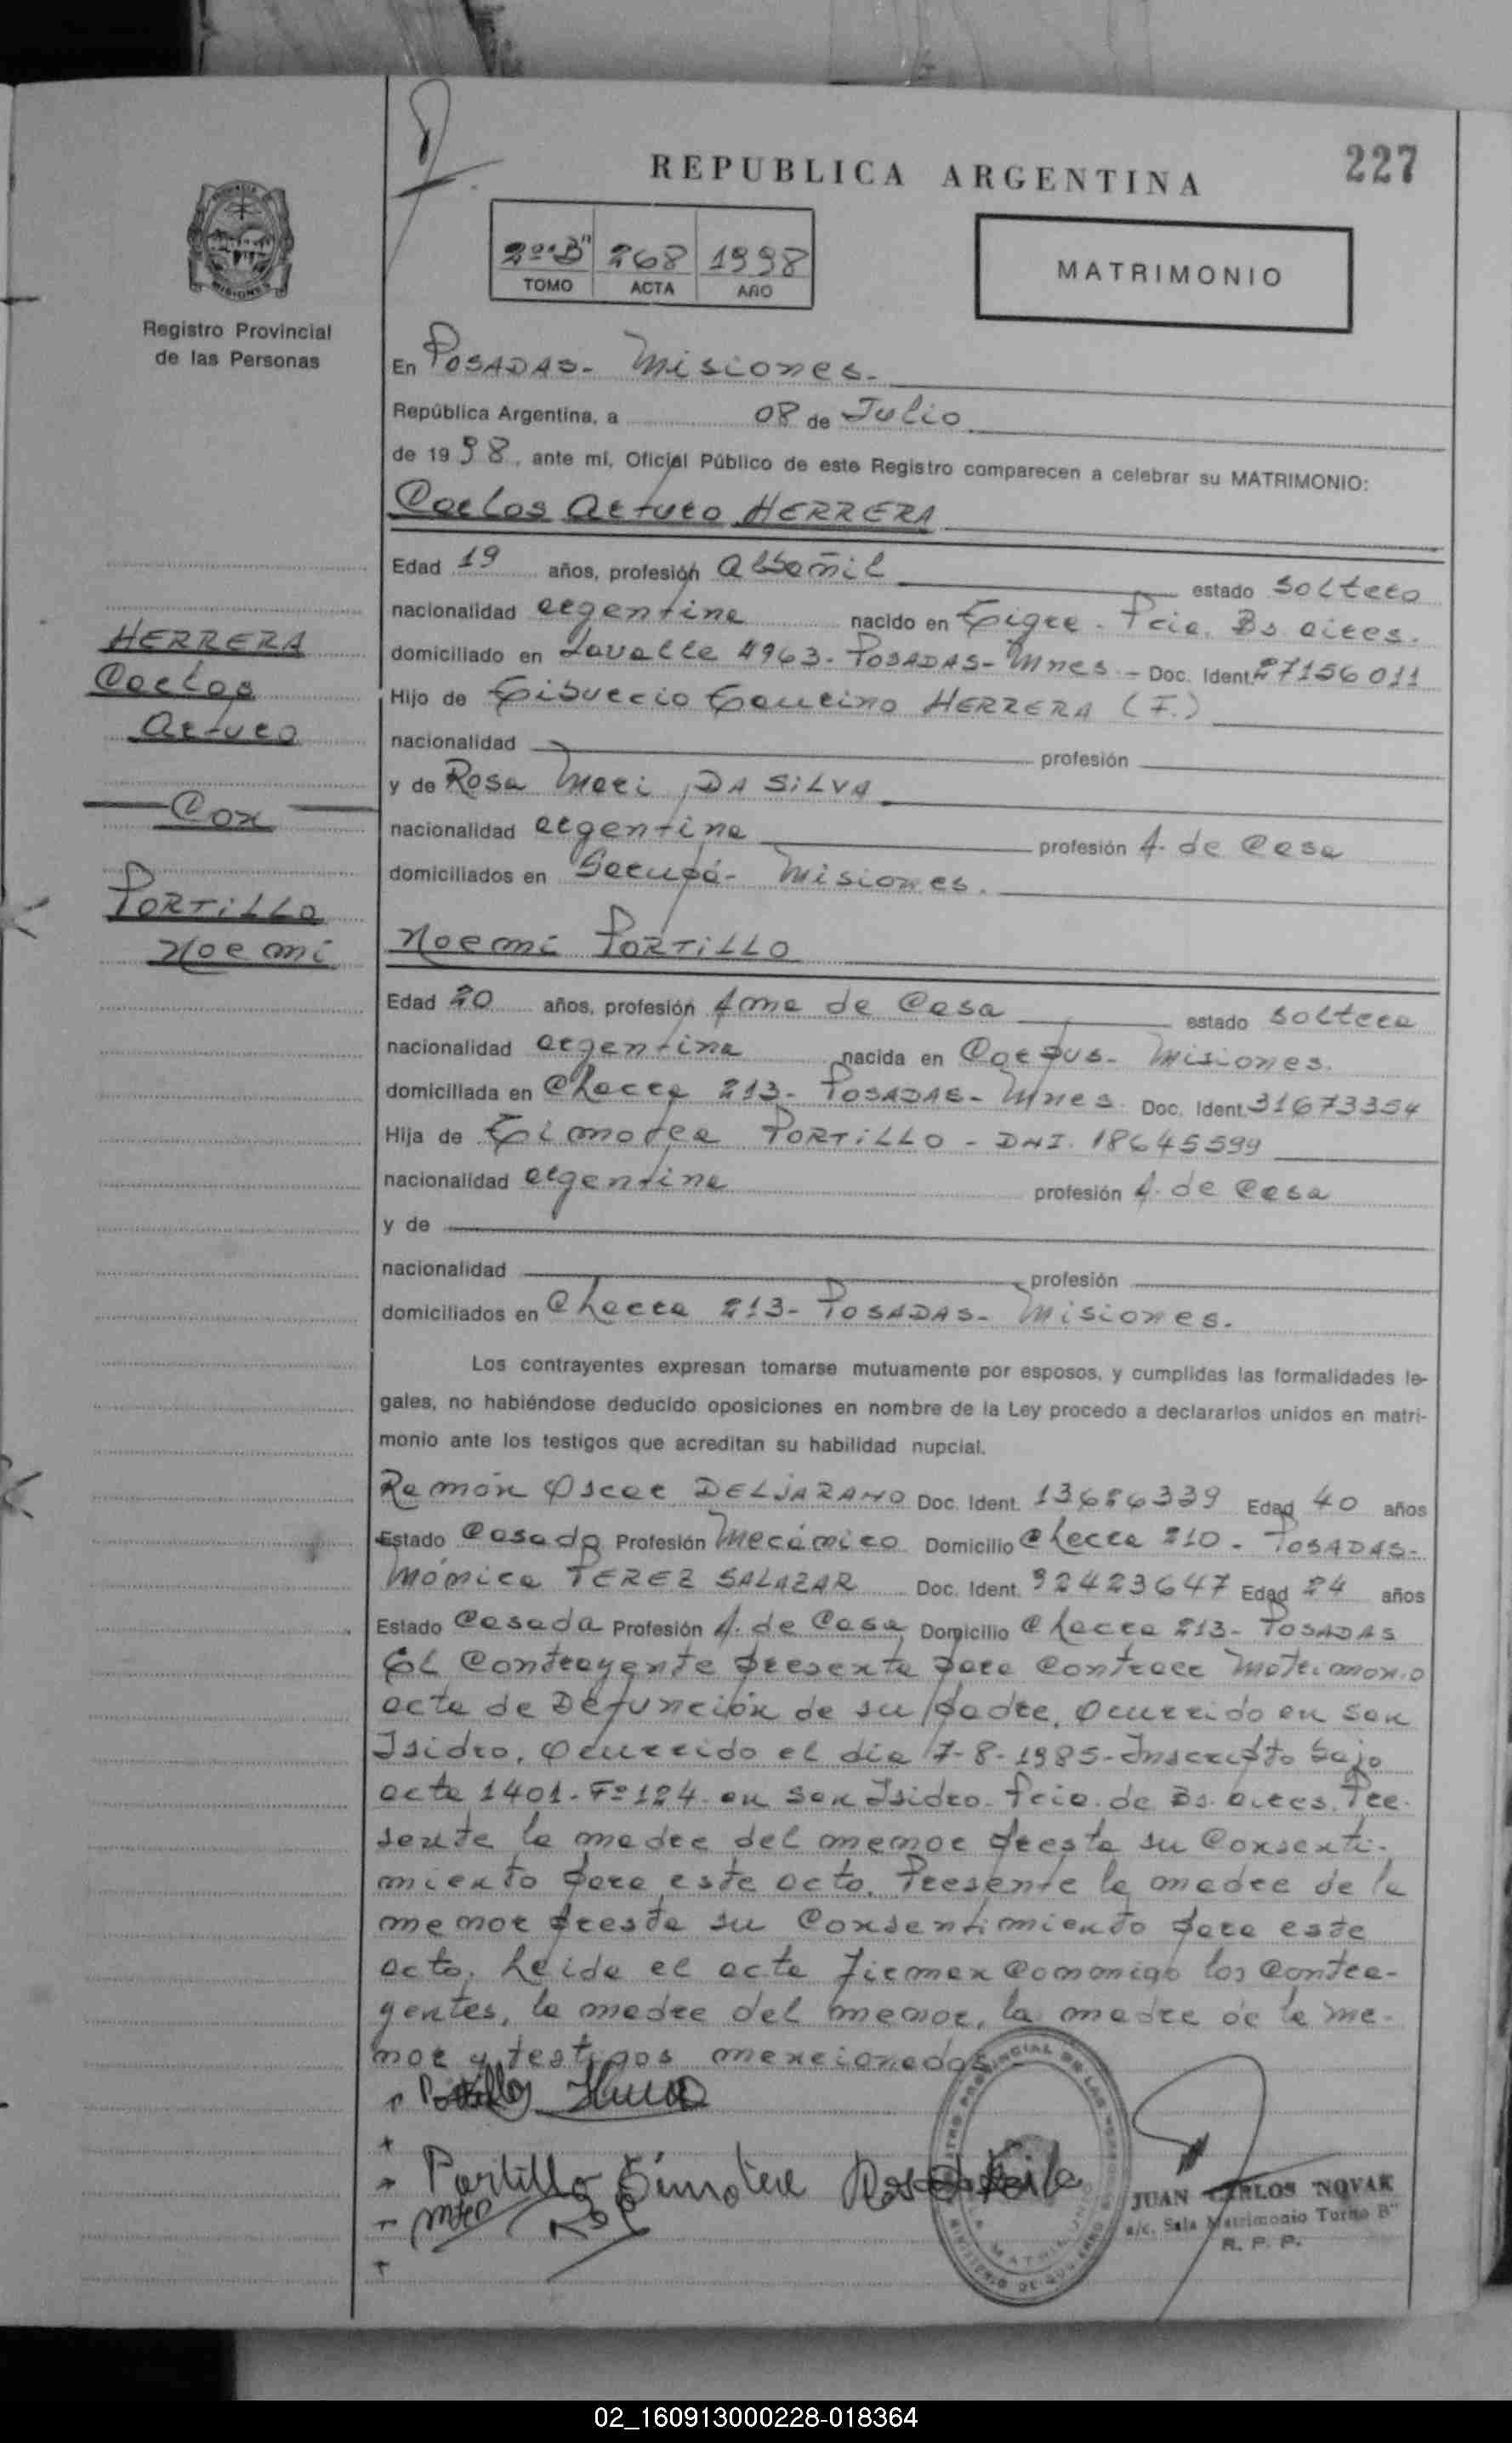 227
REPUBLICA ARGENTINA
2º "B" 268 1998
TOMO ACTA AÑO
MATRIMONIO
Registro Provincial
de las Personas
En POSADAS- Misiones.
República Argentina, a 08 de Julio
de 1998, ante mí, Oficial Público de este Registro comparecen a celebrar su MATRIMONIO:
Carlos Arturo HERRERA
Edad 19 años, profesión Albañil estado soltero
nacionalidad argentina nacido en Tigre - Pcia. Bs. aires.
domiciliado en Lavalle 4963- POSADAS- Mnes - Doc. Ident. 27156011
Hijo de Tisurcio Taurino HERRERA (F.)
nacionalidad profesión
y de Rosa Mari DA SILVA
nacionalidad argentina profesión A. de Casa
domiciliados en Garupá- Misiones.
HERRERA
Carlos
Arturo
Con
PORTILLO
Noemi
Noemi PORTILLO
Edad 20 años, profesión Ama de Casa estado soltera
nacionalidad argentina nacida en Corpus- Misiones.
domiciliada en Charca 213- POSADAS- Mnes. Doc. Ident. 31673354
Hija de Timotea PORTILLO - DNI. 18645599
nacionalidad argentina profesión A. de Casa
y de
nacionalidad profesión
domiciliados en Charca 213- POSADAS- Misiones.
Los contrayentes expresan tomarse mutuamente por esposos, y cumplidas las formalidades le-
gales, no habiéndose deducido oposiciones en nombre de la Ley procedo a declararlos unidos en matri-
monio ante los testigos que acreditan su habilidad nupcial.
Ramón Oscar DELJARANO Doc. Ident. 13686339 Edad 40 años
Estado Casado Profesión Mecánico Domicilio Checca 210 - POSADAS-
Mónica PEREZ SALAZAR Doc. Ident. 92423647 Edad 24 años
Estado Casada Profesión A. de Casa Domicilio Charca 213- POSADAS
El Contrayente presenta para Contraer Matrimonio
acta de Defunción de su padre, Ocurrido en San
Isidro, Ocurrido el día 7-8-1985- Inscripto bajo
acta 1401- Fº 124- en San Isidro- Pcia. de Bs. aires. Pre-
sente la madre del menor presta su Consenti-
miento para este acto. Presente la madre de la
menor presta su Consentimiento para este
acto. Leida el acta firman Conmigo los Contra-
yentes, la madre del menor, la madre de la me-
nor y testigos mencionados
Portillo
Portillo Timotea Rosa
JUAN CARLOS NOVAK
a/c. Sala Matrimonio Turno B"
R. P. P.
02_160913000228-018364